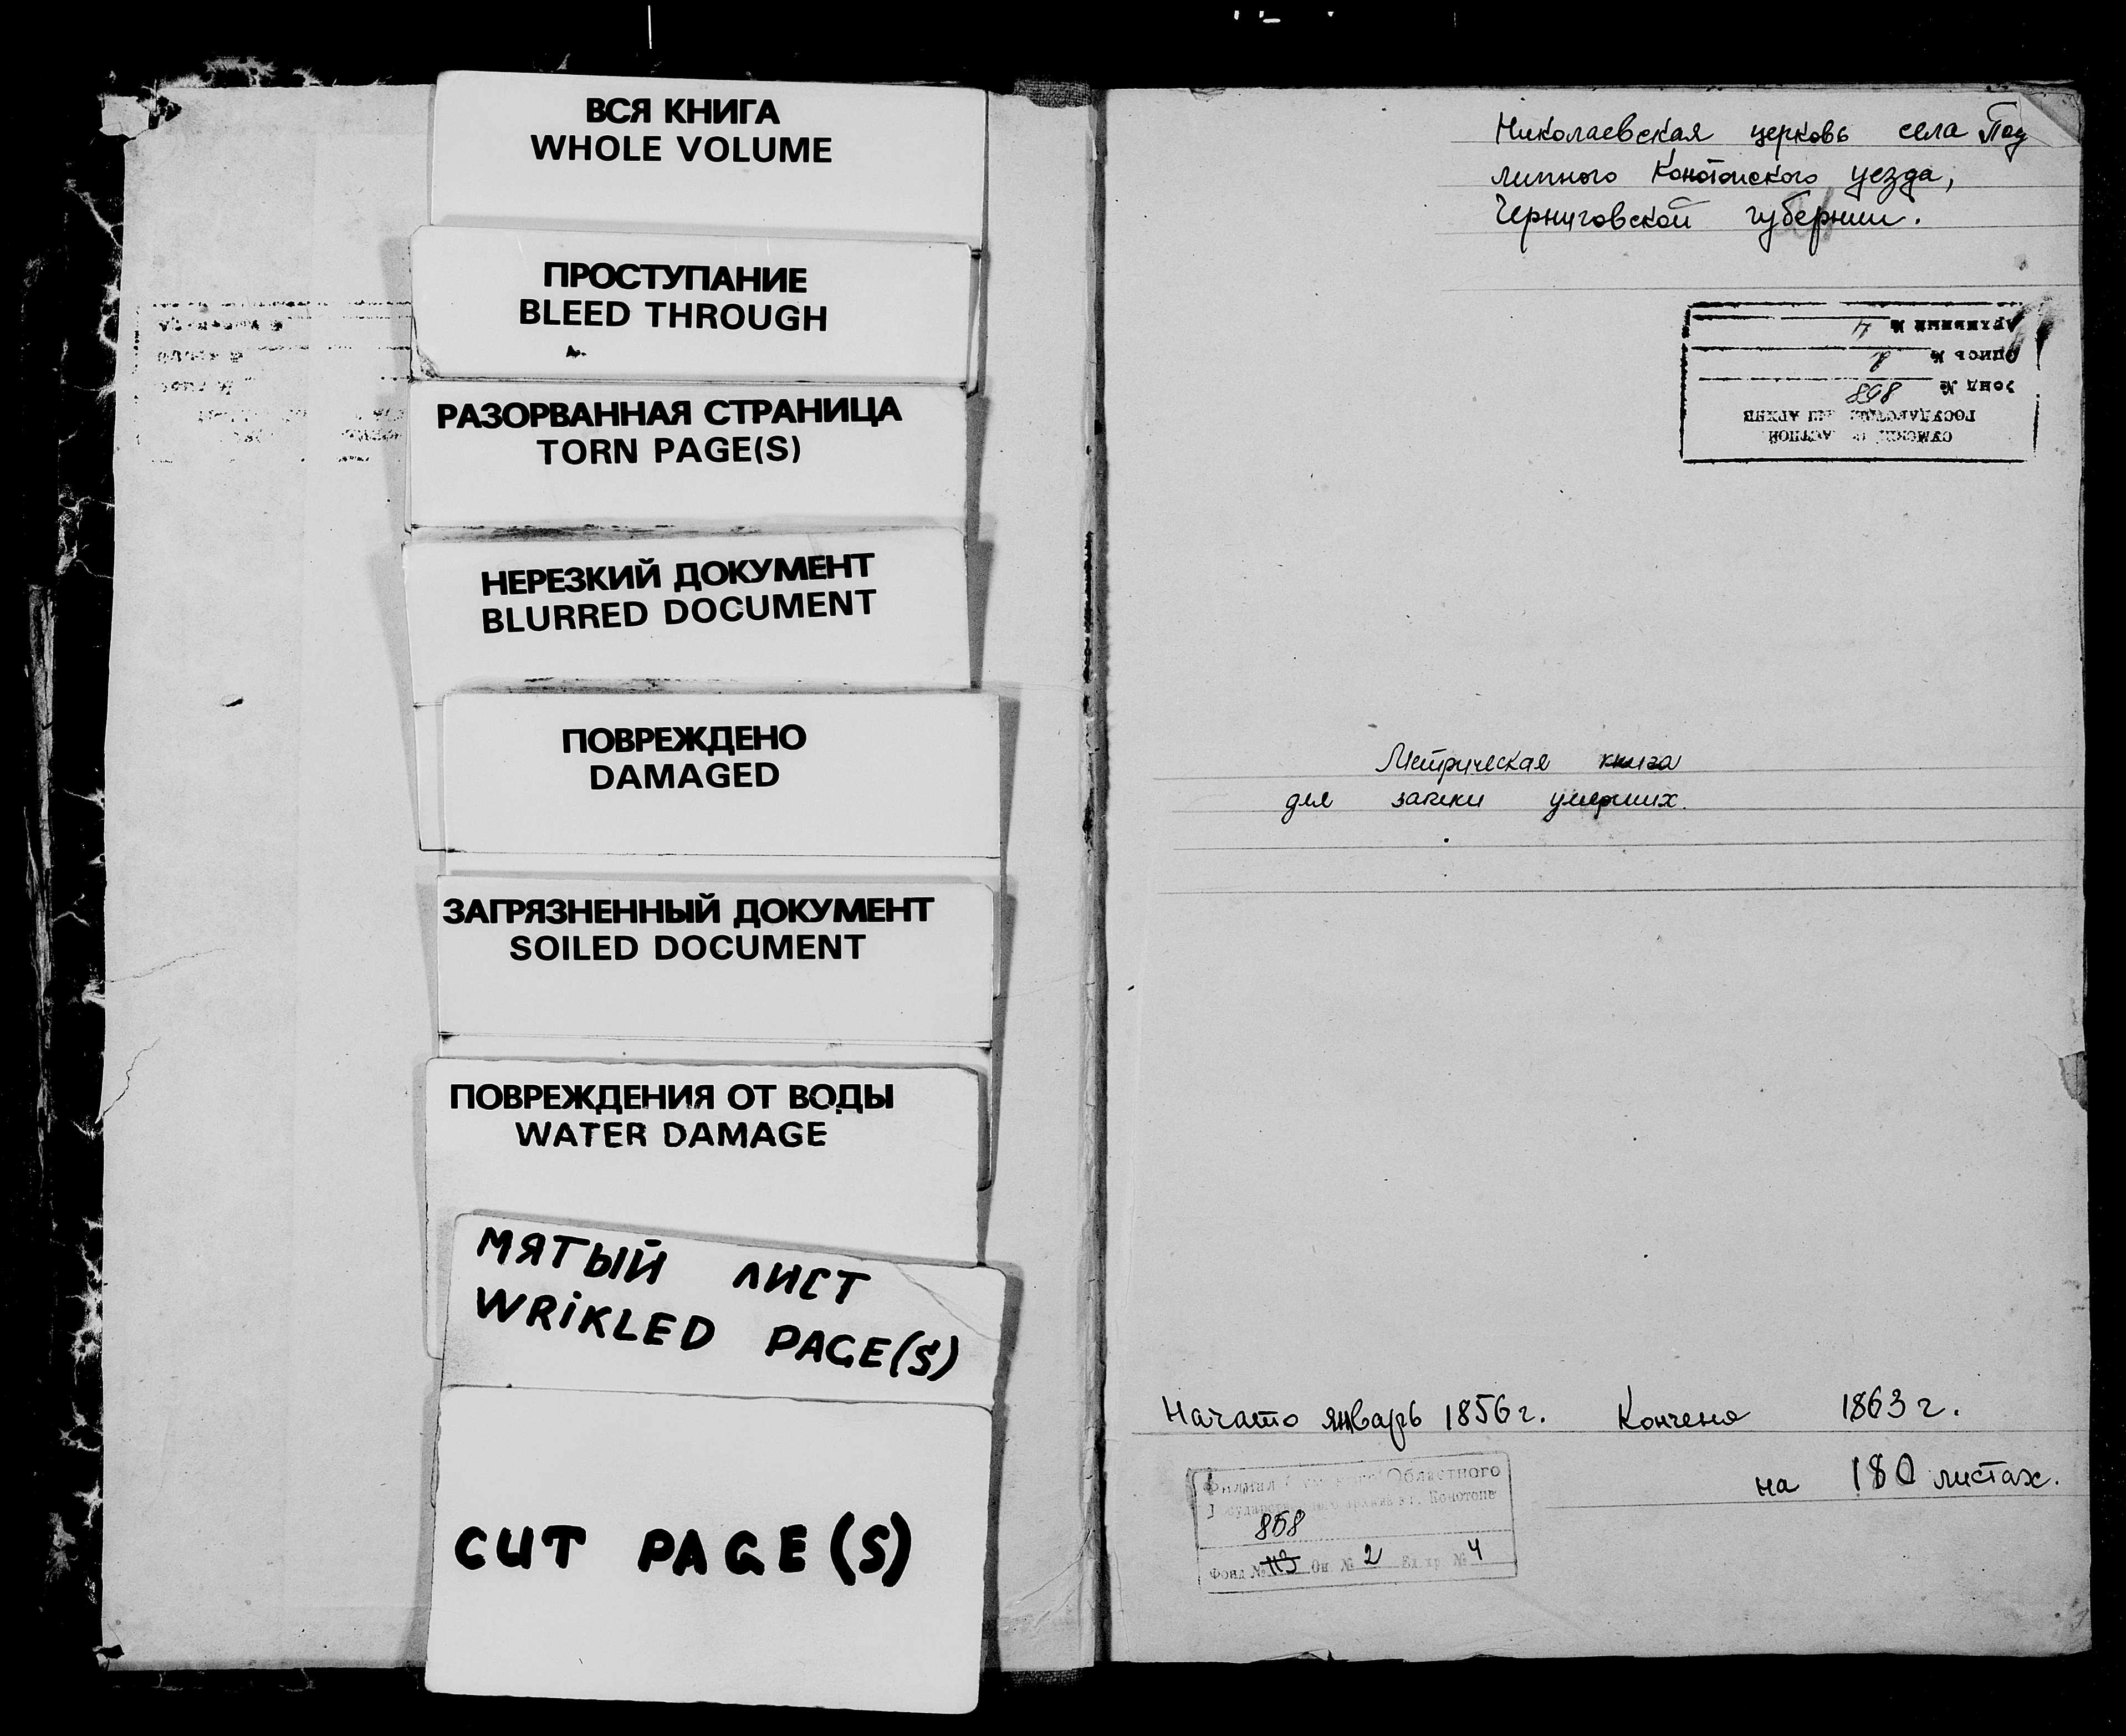 ВСЯ КНИГА
WHOLE VOLUME
ПРОСТУПАНИЕ
BLEED THROUGH
РАЗОРВАННАЯ СТРАНИЦА
TORN PAGE(S)
НЕРЕЗКИЙ ДОКУМЕНТ
BLURRED DOCUMENT
ПОВРЕЖДЕНО
DAMAGED
ЗАГРЯЗНЕННЫЙ ДОКУМЕНТ
SOILED DOCUMENT
ПОВРЕЖДЕНИЯ ОТ ВОДЫ
WATER DAMAGE
МЯТЫЙ ЛИСТ
WRIKLED PAGE(S)
CUT PAGE(S)
Николаевская церковь села Под
липного Конотопского уезда,
Черниговской губернии.
Архивный № 4
Опись № 2
Фонд № 898
Метрическая книга
для записи умерших.
Начато январь 1856 г. Кончено 1863 г.
на 180 листах.
Филиал Областного
архива в г. Конотопе
858
Фонд № 113 Оп № 2 Ед. хр № 4